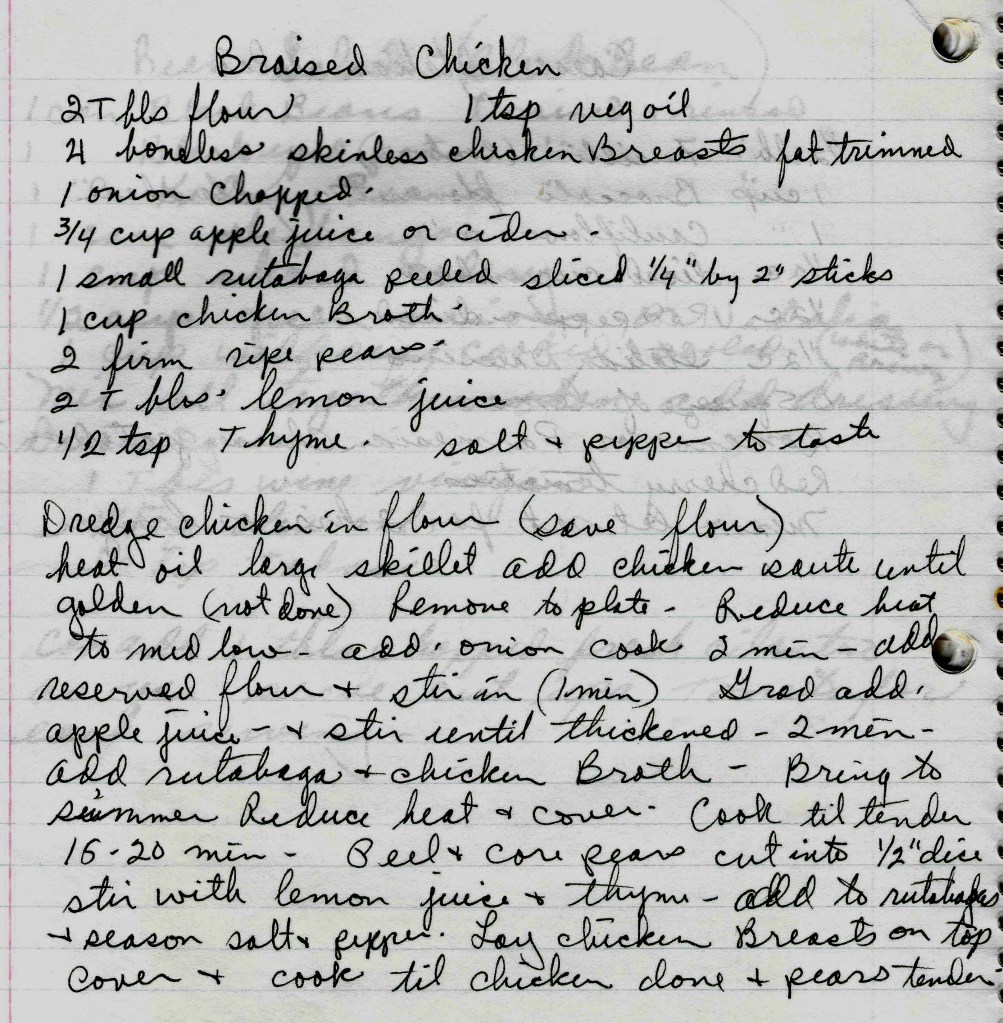 Braised Chicken
2 Tbls flour 1 tsp veg oil
4 boneless skinless chicken Breasts fat trimmed
1 onion chopped.
3/4 cup apple juice or cider.
1 small rutabaga peeled sliced 1/4" by 2" sticks
1 cup chicken Broth.
2 firm ripe pears.
2 Tbls. lemon juice
1/2 tsp Thyme. salt + pepper to taste
Dredge chicken in flour (save flour)
heat oil large skillet add chicken saute until
golden (not done) Remove to plate - Reduce heat
to med low - add. onion cook 2 min - add
reserved flour + stir in (1 min) Grad add.
apple juice - + stir until thickened - 2 min -
add rutabaga + chicken Broth - Bring to
simmer Reduce heat + cover. Cook til tender
15-20 min - Peel + core pears cut into 1/2" dice
stir with lemon juice + thyme - add to rutabagas
+ season salt + pepper. Lay chicken Breasts on top
Cover + cook til chicken done + pears tender.